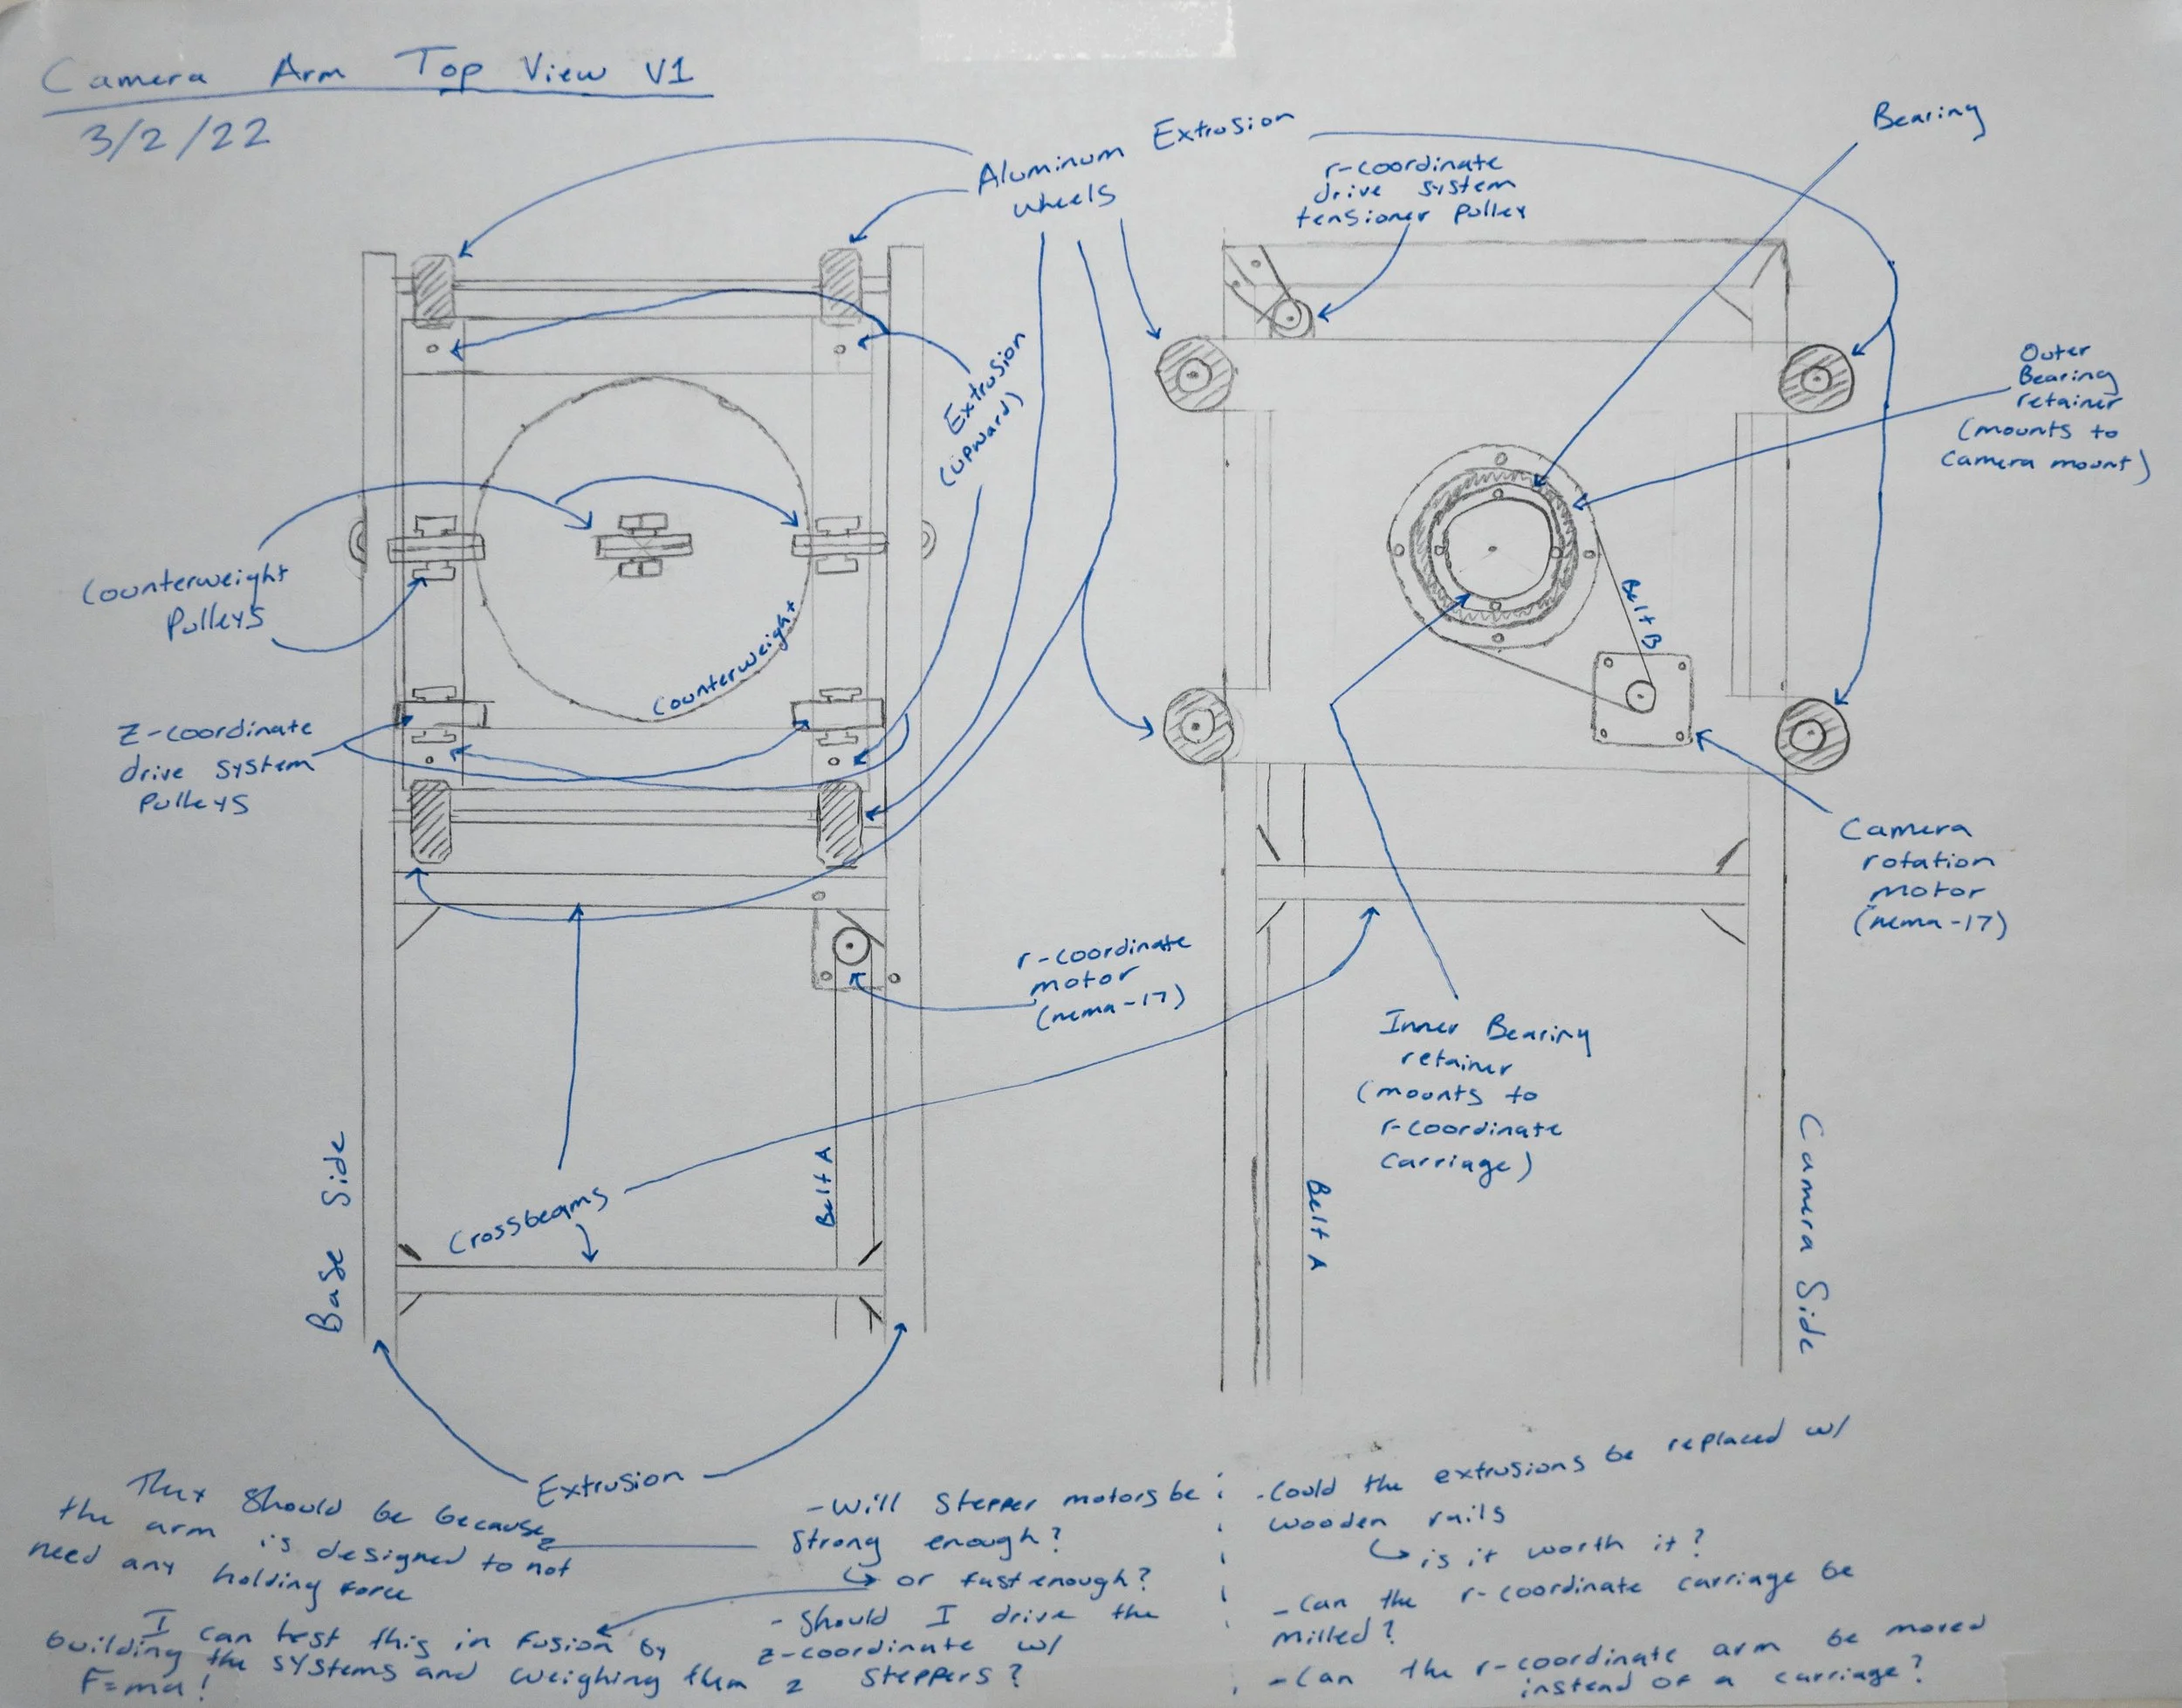 Camera Arm Top View V1
3/2/22
Aluminum Extrusion
wheels
r-coordinate
drive system
tensioner pulley
Bearing
Outer
Bearing
retainer
(mounts to
camera mount)
Extrusion
(upward)
Counterweight
Pulleys
Counterweight
Z-coordinate
drive system
Pulleys
Belt B
Camera
rotation
motor
(nema-17)
r-coordinate
motor
(nema-17)
Inner Bearing
retainer
(mounts to
r-coordinate
carriage)
Base Side
Crossbeams
Belt A
Belt A
Camera Side
Extrusion
They should be because
the arm is designed to not
need any holding force
I can test this in fusion by
building the systems and weighing them
F=ma!
- Will stepper motors be
strong enough?
↳ or fast enough?
- Should I drive the
z-coordinate w/
2 steppers?
- Could the extrusions be replaced w/
wooden rails
↳ is it worth it?
- Can the r-coordinate carriage be
milled?
- Can the r-coordinate arm be moved
instead of a carriage?